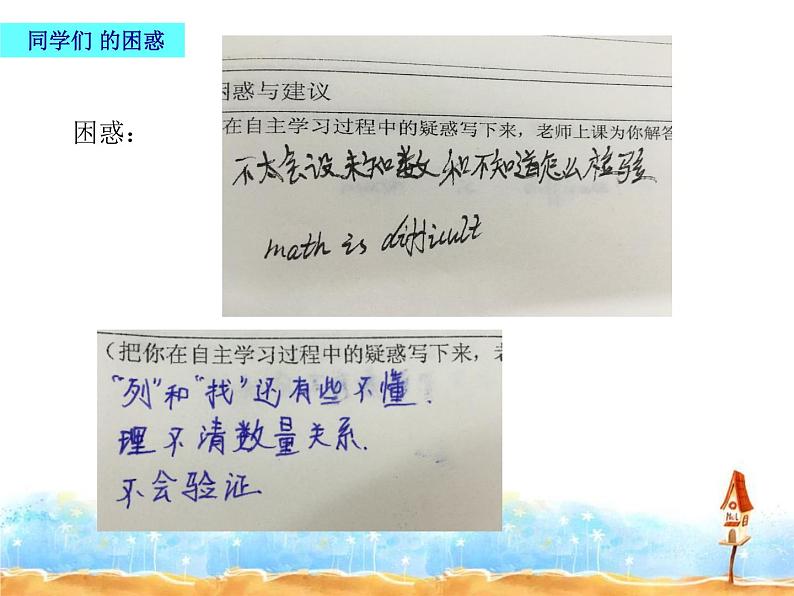 同学们 的困惑
困惑：
困惑与建议
在自主学习过程中的疑惑写下来，老师上课为你解答
不太会设未知数和不知道怎么检验
math is difficult
（把你在自主学习过程中的疑惑写下来，老
"列"和"找"还有些不懂.
理不清数量关系.
不会验证.
No.1